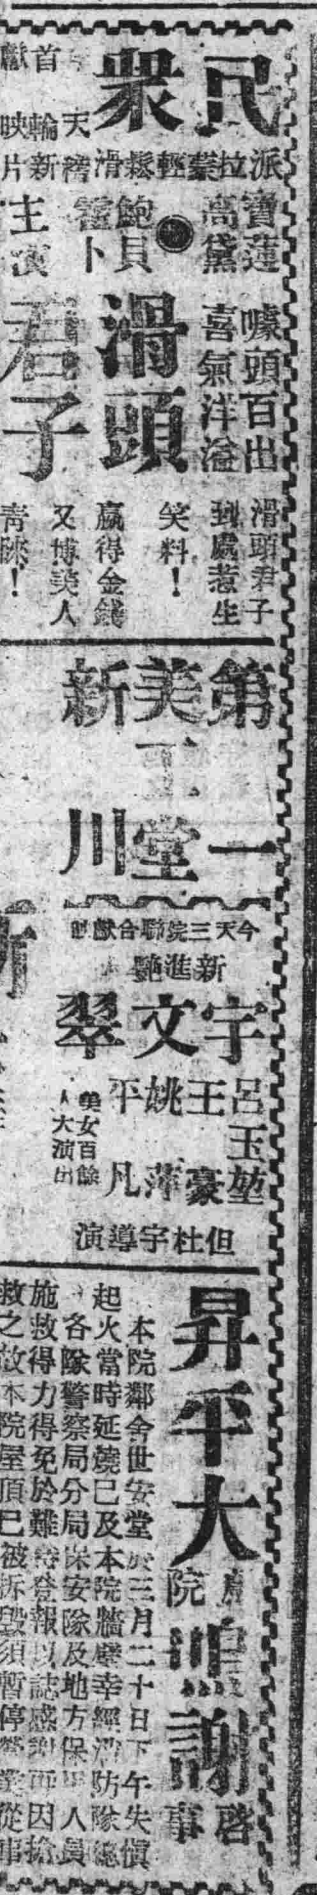 民眾
首獻
天輪新映片
派拉蒙輕鬆滑稽
寶蓮高黛
鮑貝霍卜
主演
滑頭君子
噱頭百出
喜氣洋溢
滑頭君子
到處惹生
笑料！
贏得金錢
又博美人
青睞！
第一
美工堂
新川
今天三院聯合獻映
新進艷
宇文翠
呂玉堃
王豪
姚萍
平凡
美女百餘
人大演出
但杜宇導演
昇平大
戲院
鳴謝
啓事
本院鄰舍世安堂於三月二十日下午失慎
起火當時延燒已及本院牆壁幸經消防隊總
各隊警察局分局保安隊及地方保甲人員
施救得力得免於難特登報以誌感謝而因搶
救之故本院屋頂已被拆毀須暫停營業從事